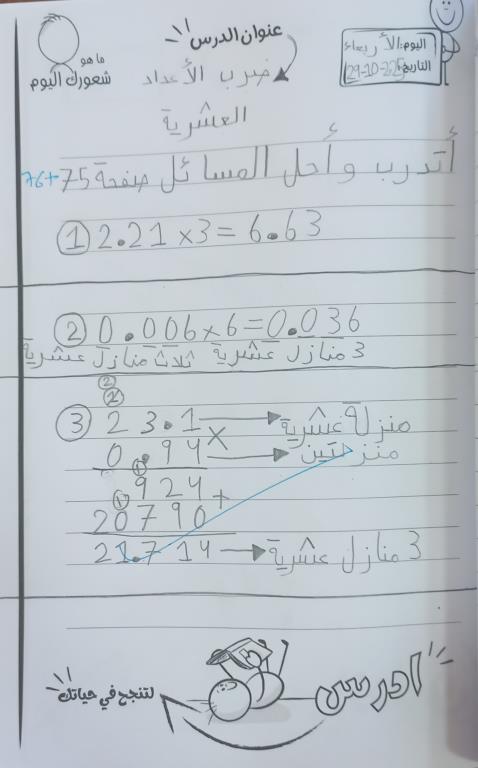 اليوم: الأربعاء
التاريخ: 29-10-2025
عنوان الدرس
ضرب الأعداد
العشرية
ما هو
شعورك اليوم
أتدرب وأحل المسائل صفحة 75+76
① 2.21 × 3 = 6.63
② 0.006 × 6 = 0.036
3 منازل عشرية ثلاث منازل عشرية
②
③ 23.1 → منزلة عشرية
×
0.94 → منزلتين
① 924 +
① 20790
21.714 → 3 منازل عشرية
ادرس
لتنجح في حياتك